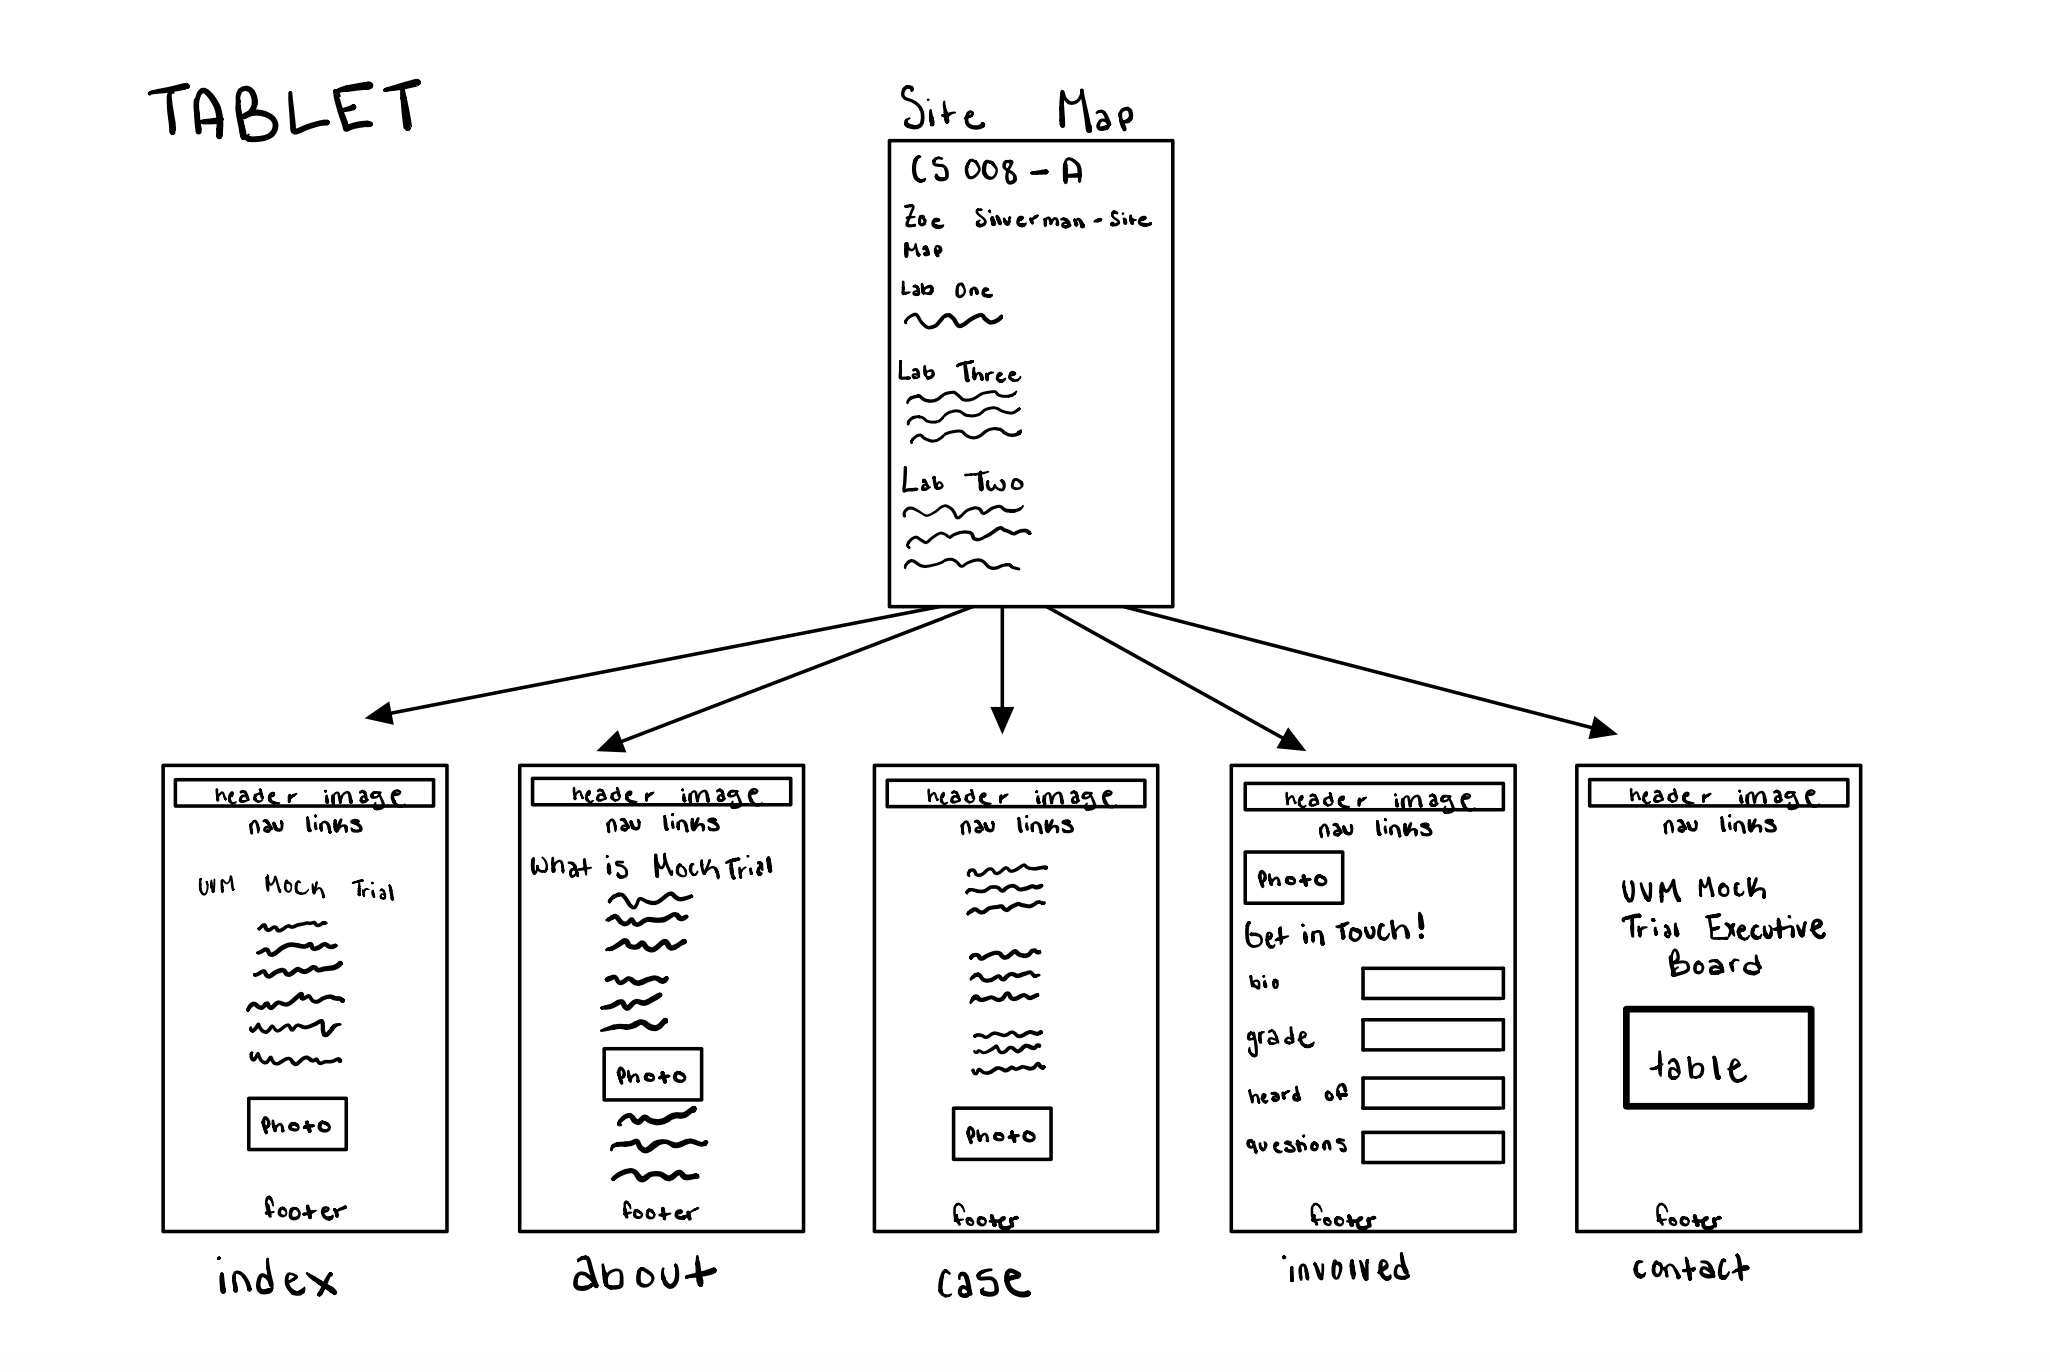 TABLET
Site Map
CS 008 - A
Zoe Silverman - Site
Map
Lab One
Lab Three
Lab Two
header image
nav links
UVM Mock Trial
Photo
footer
index
header image
nav links
What is Mock Trial
Photo
footer
about
header image
nav links
Photo
footer
case
header image
nav links
Photo
Get in Touch!
bio
grade
heard of
questions
footer
involved
header image
nav links
UVM Mock
Trial Executive
Board
table
footer
contact